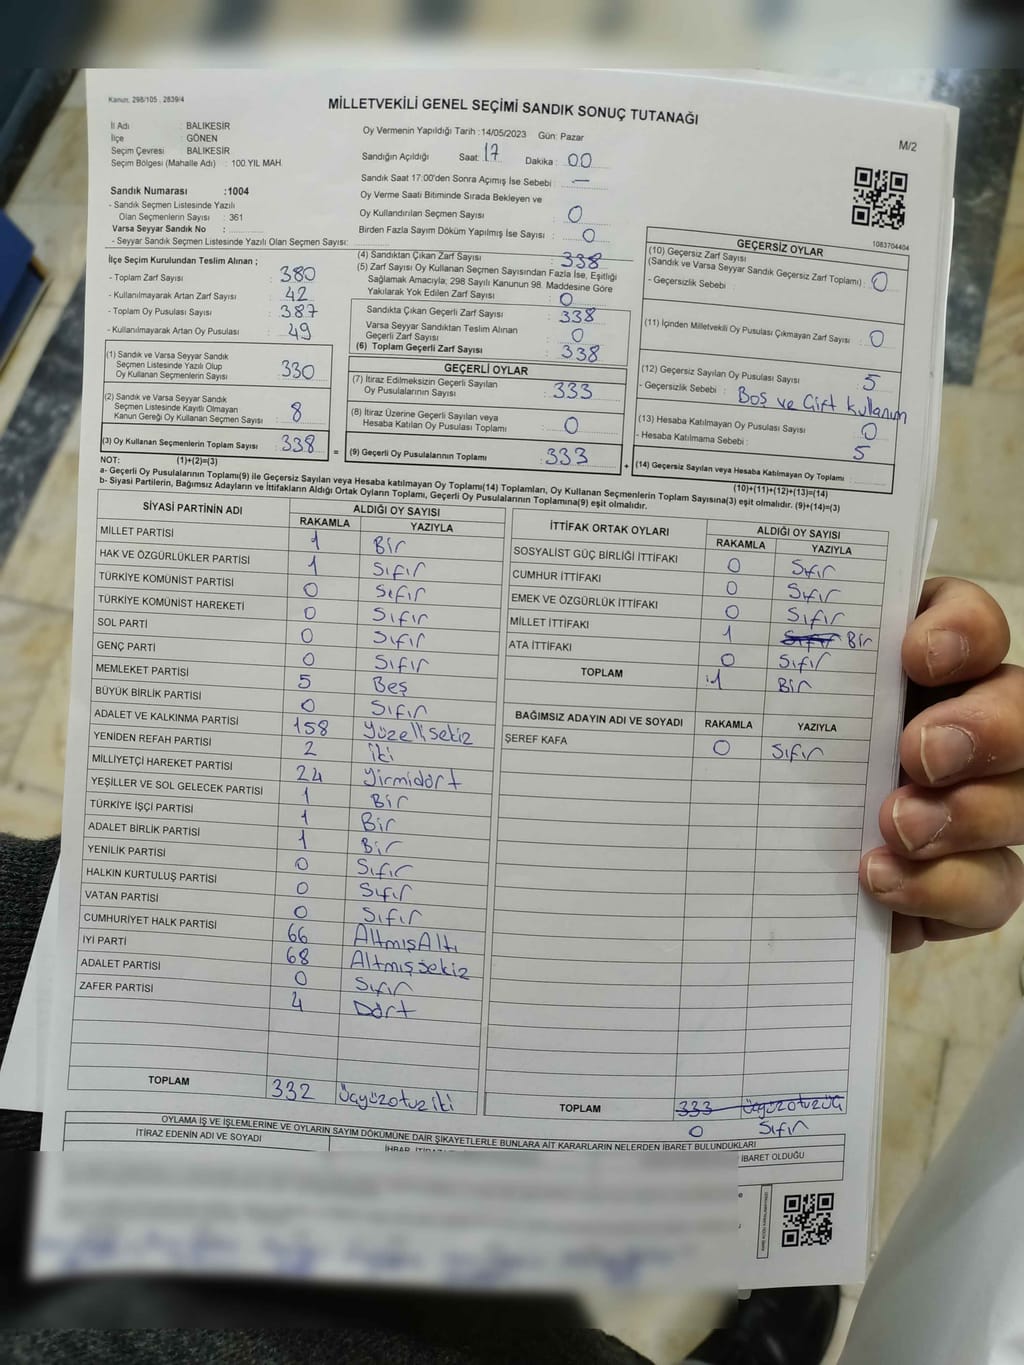 Kanun, 298/105 , 2839/4
MİLLETVEKİLİ GENEL SEÇİMİ SANDIK SONUÇ TUTANAĞI
M/2
İl Adı : BALIKESİR
İlçe : GÖNEN
Seçim Çevresi : BALIKESİR
Seçim Bölgesi (Mahalle Adı) : 100.YIL MAH.
Sandık Numarası :1004
- Sandık Seçmen Listesinde Yazılı
Olan Seçmenlerin Sayısı : 361
Varsa Seyyar Sandık No :
- Seyyar Sandık Seçmen Listesinde Yazılı Olan Seçmen Sayısı:
Oy Vermenin Yapıldığı Tarih :14/05/2023 Gün: Pazar
Sandığın Açıldığı Saat: 17 Dakika : 00
Sandık Saat 17:00'den Sonra Açımış İse Sebebi : —
Oy Verme Saati Bitiminde Sırada Bekleyen ve
Oy Kullandırılan Seçmen Sayısı : 0
Birden Fazla Sayım Döküm Yapılmış İse Sayısı : 0
1083704404
İlçe Seçim Kurulundan Teslim Alınan ;
- Toplam Zarf Sayısı : 380
- Kullanılmayarak Artan Zarf Sayısı : 42
- Toplam Oy Pusulası Sayısı : 387
- Kullanılmayarak Artan Oy Pusulası : 49
(1) Sandık ve Varsa Seyyar Sandık
Seçmen Listesinde Yazılı Olup
Oy Kullanan Seçmenlerin Sayısı : 330
(2) Sandık ve Varsa Seyyar Sandık
Seçmen Listesinde Kayıtlı Olmayan
Kanun Gereği Oy Kullanan Seçmen Sayısı : 8
(3) Oy Kullanan Seçmenlerin Toplam Sayısı : 338
(4) Sandıktan Çıkan Zarf Sayısı : 338
(5) Zarf Sayısı Oy Kullanan Seçmen Sayısından Fazla İse, Eşitliği
Sağlamak Amacıyla, 298 Sayılı Kanunun 98. Maddesine Göre
Yakılarak Yok Edilen Zarf Sayısı : 0
Sandıkta Çıkan Geçerli Zarf Sayısı : 338
Varsa Seyyar Sandıktan Teslim Alınan
Geçerli Zarf Sayısı : 0
(6) Toplam Geçerli Zarf Sayısı : 338
GEÇERLİ OYLAR
(7) İtiraz Edilmeksizin Geçerli Sayılan
Oy Pusulalarının Sayısı : 333
(8) İtiraz Üzerine Geçerli Sayılan veya
Hesaba Katılan Oy Pusulası Toplamı : 0
= (9) Geçerli Oy Pusulalarının Toplamı : 333
GEÇERSİZ OYLAR
(10) Geçersiz Zarf Sayısı
(Sandık ve Varsa Seyyar Sandık Geçersiz Zarf Toplamı) : 0
- Geçersizlik Sebebi :
(11) İçinden Milletvekili Oy Pusulası Çıkmayan Zarf Sayısı : 0
(12) Geçersiz Sayılan Oy Pusulası Sayısı : 5
- Geçersizlik Sebebi : Boş ve Çift kullanım
(13) Hesaba Katılmayan Oy Pusulası Sayısı : 0
- Hesaba Katılmama Sebebi :
+ (14) Geçersiz Sayılan veya Hesaba Katılmayan Oy Toplamı : 5
NOT: (1)+(2)=(3)
(10)+(11)+(12)+(13)=(14)
a- Geçerli Oy Pusulalarının Toplamı(9) ile Geçersiz Sayılan veya Hesaba katılmayan Oy Toplamı(14) Toplamları, Oy Kullanan Seçmenlerin Toplam Sayısına(3) eşit olmalıdır. (9)+(14)=(3)
b- Siyasi Partilerin, Bağımsız Adayların ve İttifakların Aldığı Ortak Oyların Toplamı, Geçerli Oy Pusulalarının Toplamına(9) eşit olmalıdır.
SİYASİ PARTİNİN ADI
ALDIĞI OY SAYISI
RAKAMLA YAZIYLA
MİLLET PARTİSİ 1 Bir
HAK VE ÖZGÜRLÜKLER PARTİSİ 1 Sıfır
TÜRKİYE KOMÜNİST PARTİSİ 0 Sıfır
TÜRKİYE KOMÜNİST HAREKETİ 0 Sıfır
SOL PARTİ 0 Sıfır
GENÇ PARTİ 0 Sıfır
MEMLEKET PARTİSİ 5 Beş
BÜYÜK BİRLİK PARTİSİ 0 Sıfır
ADALET VE KALKINMA PARTİSİ 158 Yüzellisekiz
YENİDEN REFAH PARTİSİ 2 iki
MİLLİYETÇİ HAREKET PARTİSİ 24 Yirmidört
YEŞİLLER VE SOL GELECEK PARTİSİ 1 Bir
TÜRKİYE İŞÇİ PARTİSİ 1 Bir
ADALET BİRLİK PARTİSİ 1 Bir
YENİLİK PARTİSİ 0 Sıfır
HALKIN KURTULUŞ PARTİSİ 0 Sıfır
VATAN PARTİSİ 0 Sıfır
CUMHURİYET HALK PARTİSİ 66 AltmışAltı
İYİ PARTİ 68 Altmışsekiz
ADALET PARTİSİ 0 Sıfır
ZAFER PARTİSİ 4 Dört
TOPLAM 332 Üçyüzotuziki
İTTİFAK ORTAK OYLARI
ALDIĞI OY SAYISI
RAKAMLA YAZIYLA
SOSYALİST GÜÇ BİRLİĞİ İTTİFAKI 0 Sıfır
CUMHUR İTTİFAKI 0 Sıfır
EMEK VE ÖZGÜRLÜK İTTİFAKI 0 Sıfır
MİLLET İTTİFAKI 1 Sıfır Bir
ATA İTTİFAKI 0 Sıfır
TOPLAM 1 Bir
BAĞIMSIZ ADAYIN ADI VE SOYADI RAKAMLA YAZIYLA
ŞEREF KAFA 0 Sıfır
TOPLAM 333 Üçyüzotuzüç
0 Sıfır
OYLAMA İŞ VE İŞLEMLERİNE VE OYLARIN SAYIM DÖKÜMÜNE DAİR ŞİKAYETLERLE BUNLARA AİT KARARLARIN NELERDEN İBARET BULUNDUKLARI
İTİRAZ EDENİN ADI VE SOYADI
İBARET OLDUĞU